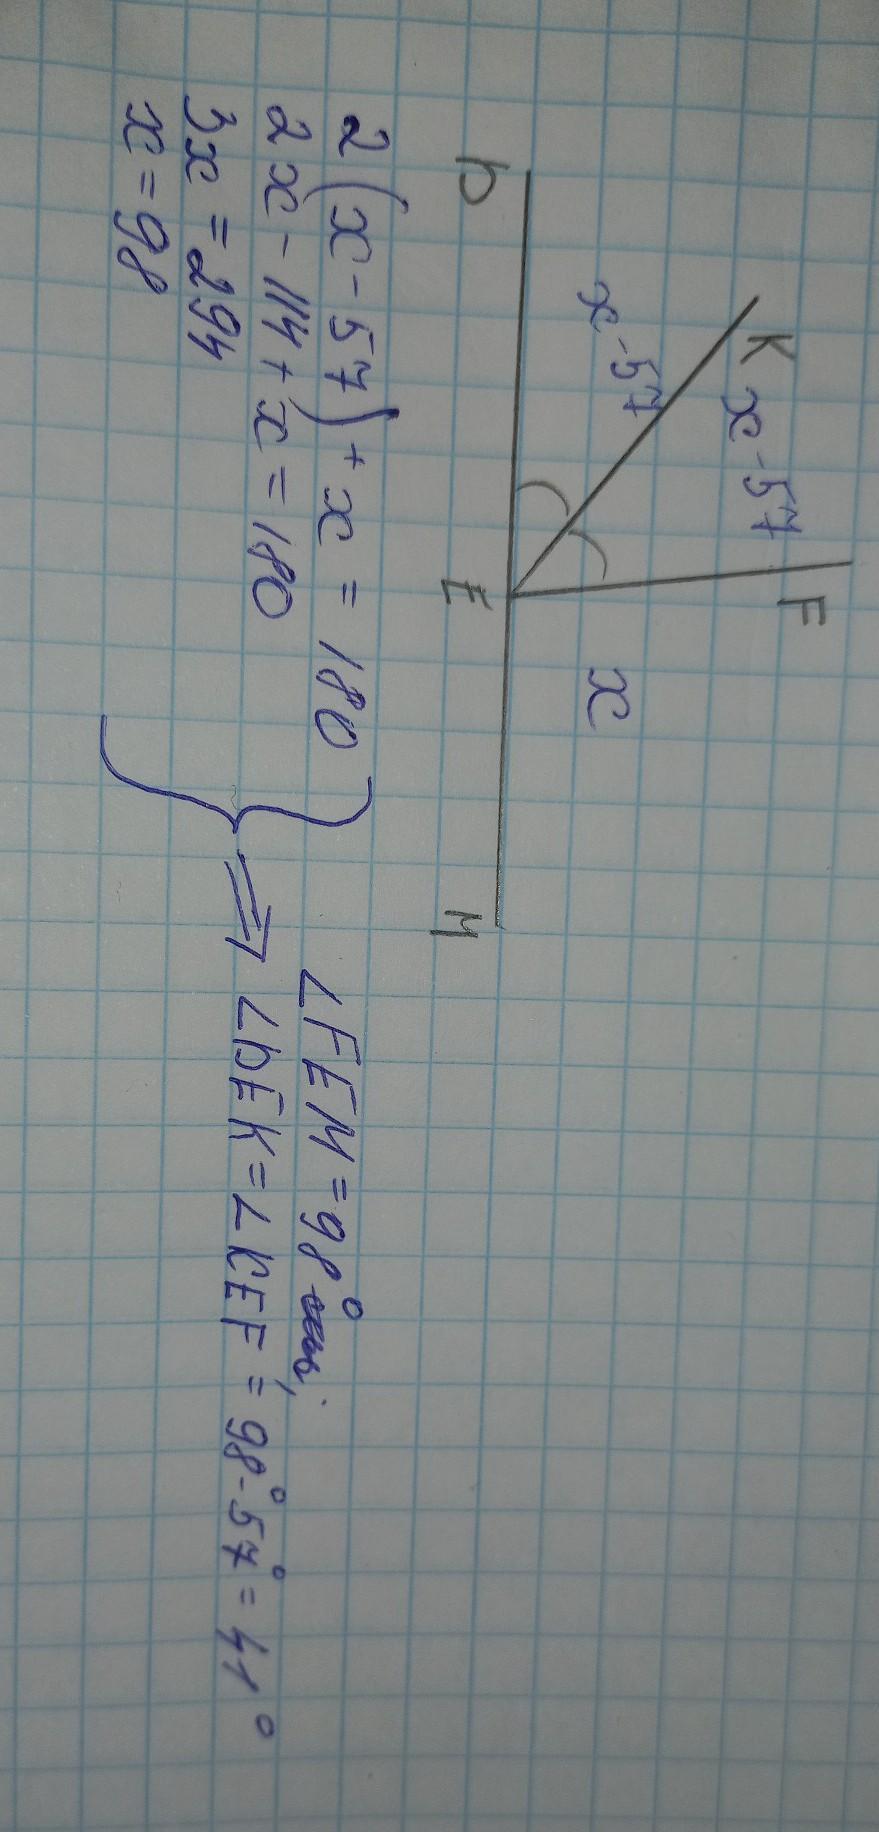 K
F
x-57
x-57
x
D
E
M
2(x-57)+x=180
2x-114+x=180
3x=294
x=98
∠FEM=98°
⇒ ∠DEK=∠KEF=98°-57°=41°